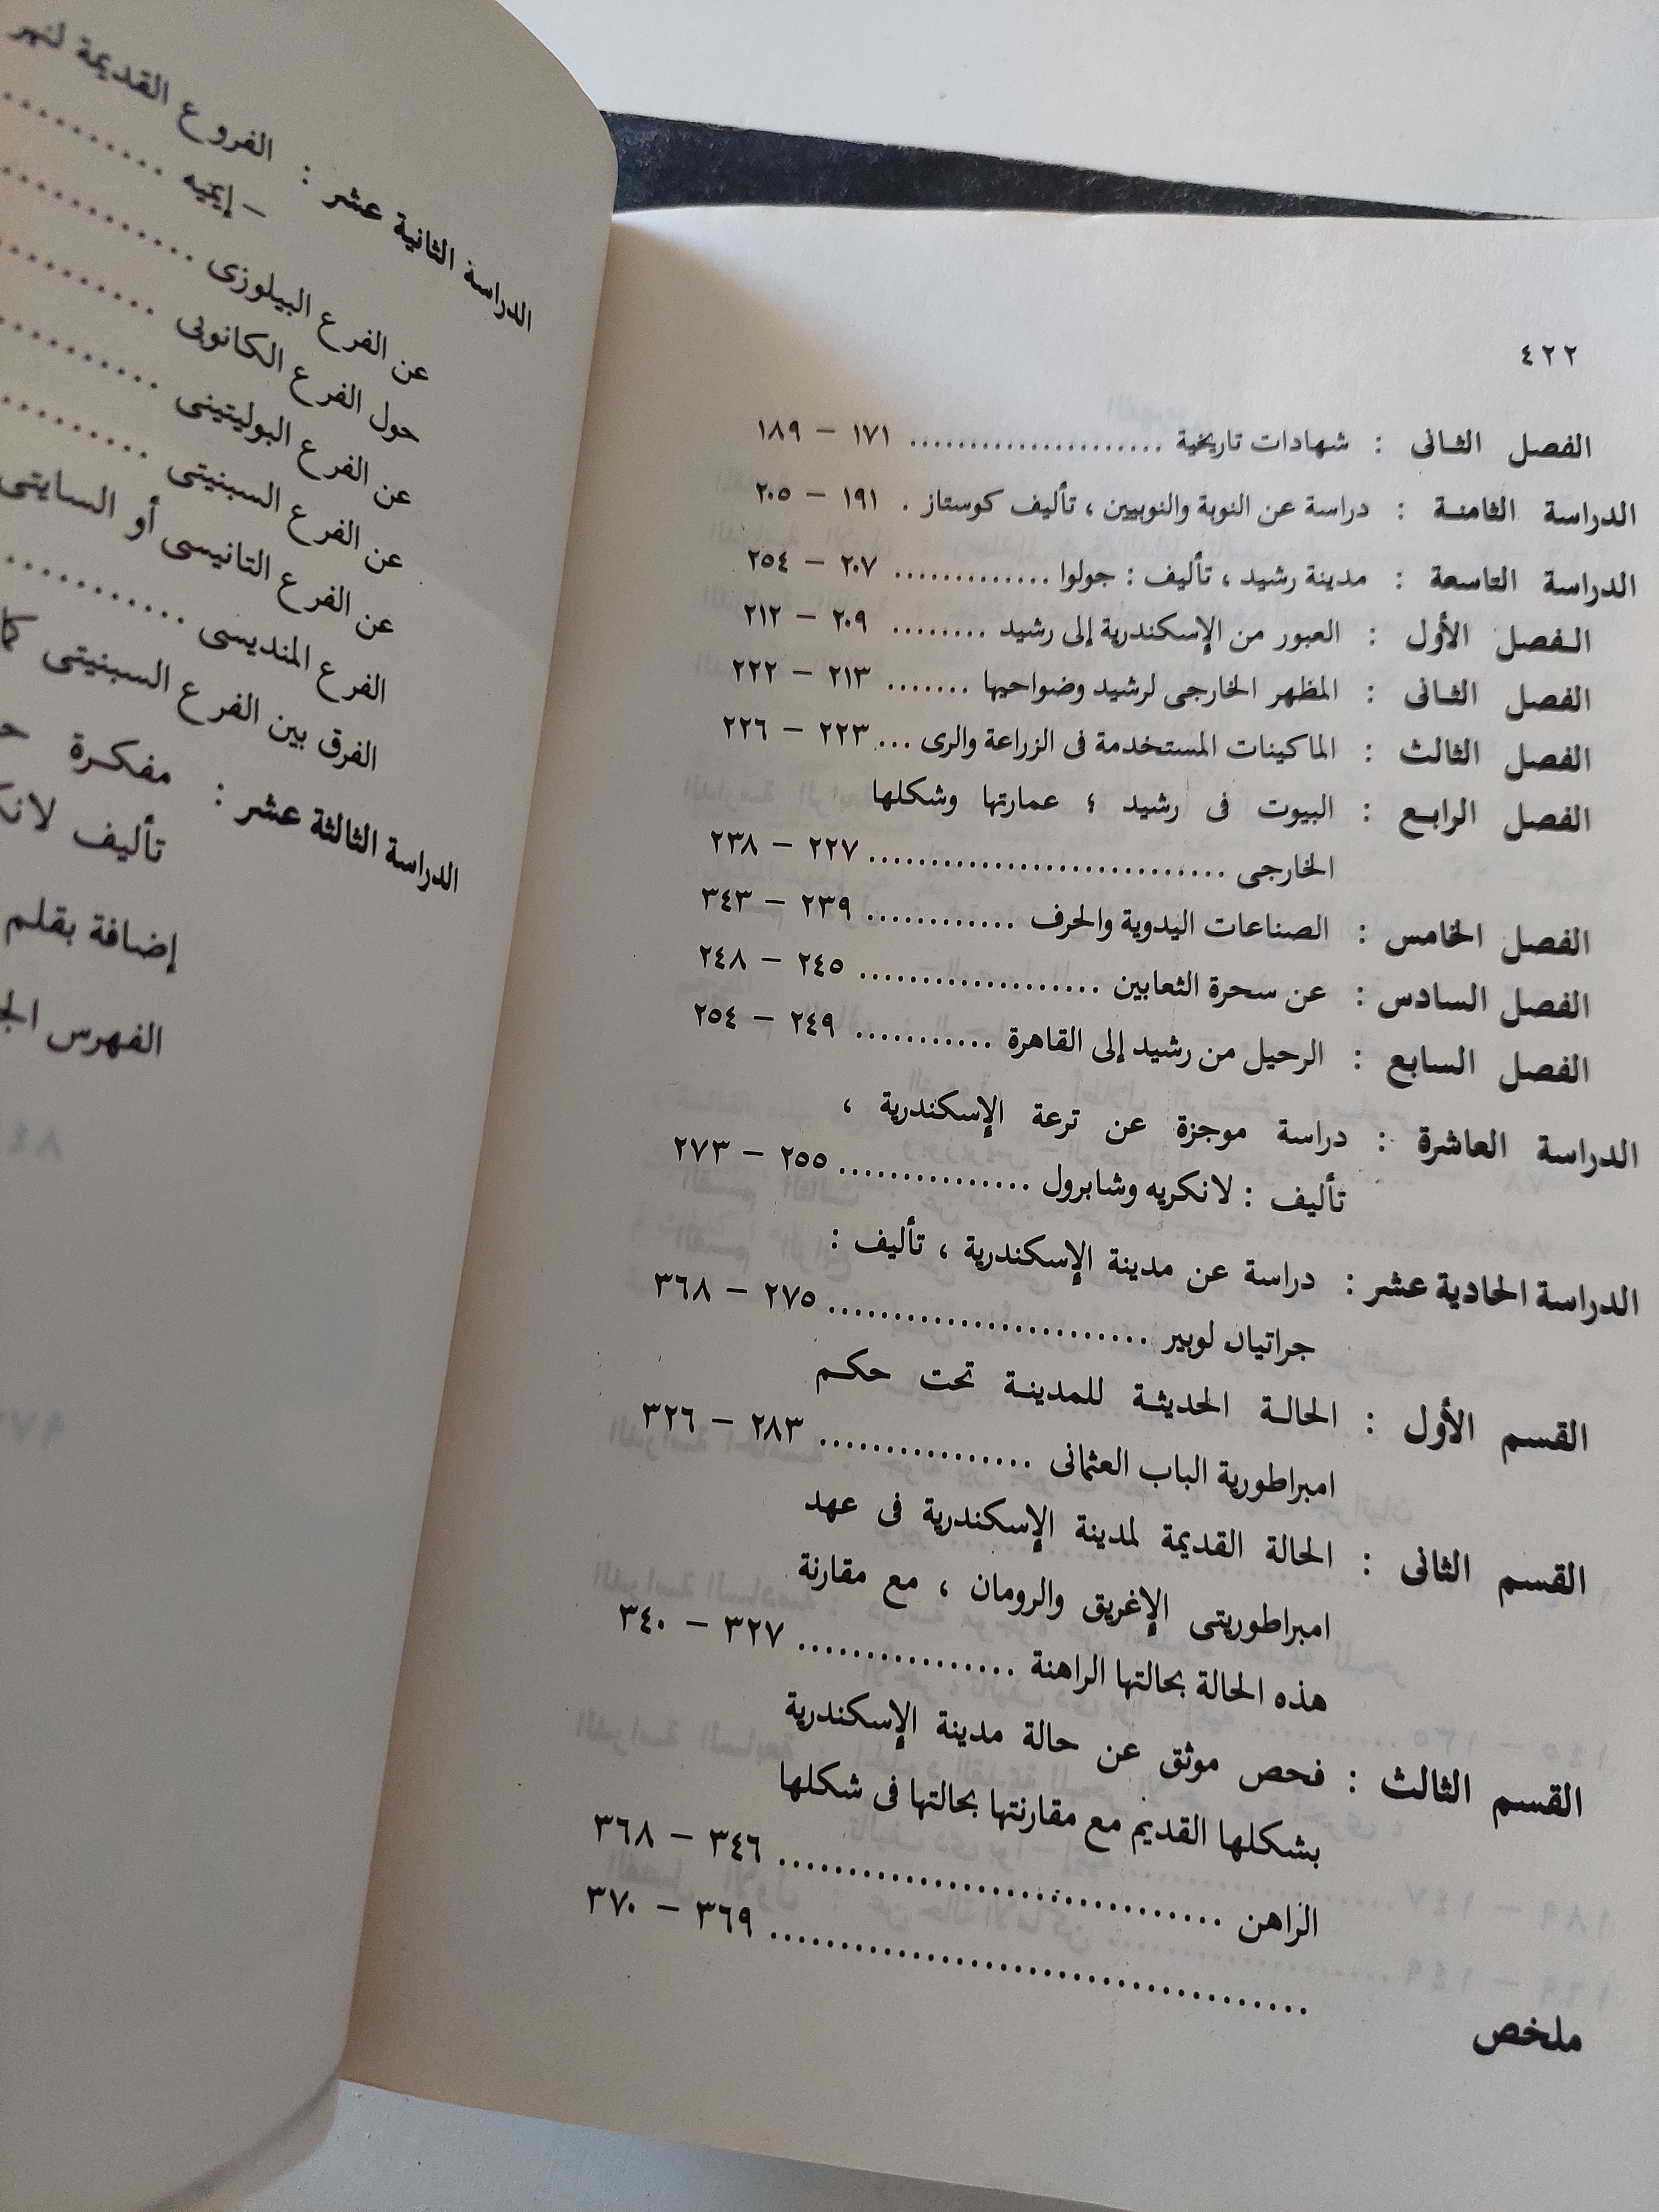 ٤٢٢
الفصل الثانى : شهادات تاريخية ..................... ١٧١ – ١٨٩
الدراسة الثامنة : دراسة عن النوبة والنوبيين ، تأليف كوستاز . ١٩١ – ٢٠٥
الدراسة التاسعة : مدينة رشيد ، تأليف : جولوا ............. ٢٠٧ – ٢٥٤
الفصل الأول : العبور من الإسكندرية إلى رشيد ........ ٢٠٩ – ٢١٢
الفصل الثانى : المظهر الخارجى لرشيد وضواحيها ....... ٢١٣ – ٢٢٢
الفصل الثالث : الماكينات المستخدمة فى الزراعة والرى ... ٢٢٣ – ٢٢٦
الفصل الرابع : البيوت فى رشيد ؛ عمارتها وشكلها
الخارجى .............................. ٢٢٧ – ٢٣٨
الفصل الخامس : الصناعات اليدوية والحرف ............ ٢٣٩ – ٣٤٣
الفصل السادس : عن سحرة الثعابين .................... ٢٤٥ – ٢٤٨
الفصل السابع : الرحيل من رشيد إلى القاهرة ........... ٢٤٩ – ٢٥٤
الدراسة العاشرة : دراسة موجزة عن ترعة الإسكندرية ،
تأليف : لانكريه وشابرول ................ ٢٥٥ – ٢٧٣
الدراسة الحادية عشر : دراسة عن مدينة الإسكندرية ، تأليف :
جراتيان لوبير ........................... ٢٧٥ – ٣٦٨
القسم الأول : الحالة الحديثة للمدينة تحت حكم
امبراطورية الباب العثمانى .................. ٢٨٣ – ٣٢٦
القسم الثانى : الحالة القديمة لمدينة الإسكندرية فى عهد
امبراطوريتى الإغريق والرومان ، مع مقارنة
هذه الحالة بحالتها الراهنة .................. ٣٢٧ – ٣٤٠
القسم الثالث : فحص موثق عن حالة مدينة الإسكندرية
بشكلها القديم مع مقارنتها بحالتها فى شكلها
الراهن ..................................... ٣٤٦ – ٣٦٨
ملخص ............................................. ٣٦٩ – ٣٧٠
الدراسة الثانية عشر : الفروع القديمة لنهر
– إيميه ..........
عن الفرع البيلوزى ..........
حول الفرع الكانوبى ..........
عن الفرع البوليتينى ..........
عن الفرع السبنيتى ..........
عن الفرع التانيسى أو السايتى
الفرع المنديسى ..........
الفرق بين الفرع السبنيتى كما
الدراسة الثالثة عشر : مفكرة
تأليف
إضافة بقلم
الفهرس